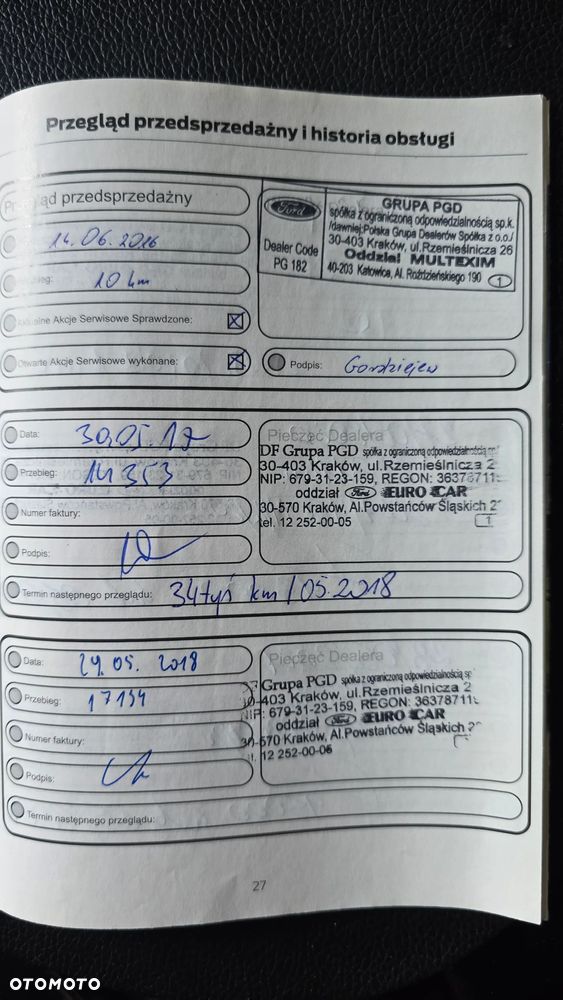 Przegląd przedsprzedażny i historia obsługi
Przegląd przedsprzedażny
14.06.2016
Przebieg: 10 km
Aktualne Akcje Serwisowe Sprawdzone: X
Otwarte Akcje Serwisowe wykonane: X
Ford
Dealer Code
PG 182
GRUPA PGD
spółka z ograniczoną odpowiedzialnością sp.k.
/dawniej:Polska Grupa Dealerów Spółka z o.o./
30-403 Kraków, ul.Rzemieślnicza 26
Oddział MULTEXIM
40-203 Katowice, Al. Roździeńskiego 190 1
Podpis:
Data: 30.05.17
Przebieg: 14 353
Numer faktury:
Podpis:
Termin następnego przeglądu: 34tyś km / 05.2018
Pieczęć Dealera
DF Grupa PGD spółka z ograniczoną odpowiedzialnością sp
30-403 Kraków, ul.Rzemieślnicza 2
NIP: 679-31-23-159, REGON: 36378711
oddział Ford EURO CAR
30-570 Kraków, Al.Powstańców Śląskich 2
tel. 12 252-00-05
1
Data: 24.05.2018
Przebieg: 17194
Numer faktury:
Podpis:
Termin następnego przeglądu:
Pieczęć Dealera
DF Grupa PGD spółka z ograniczoną odpowiedzialnością sp
30-403 Kraków, ul.Rzemieślnicza 2
NIP: 679-31-23-159, REGON: 36378711
oddział Ford EURO CAR
30-570 Kraków, Al.Powstańców Śląskich 2
tel. 12 252-00-05
27
OTOMOTO